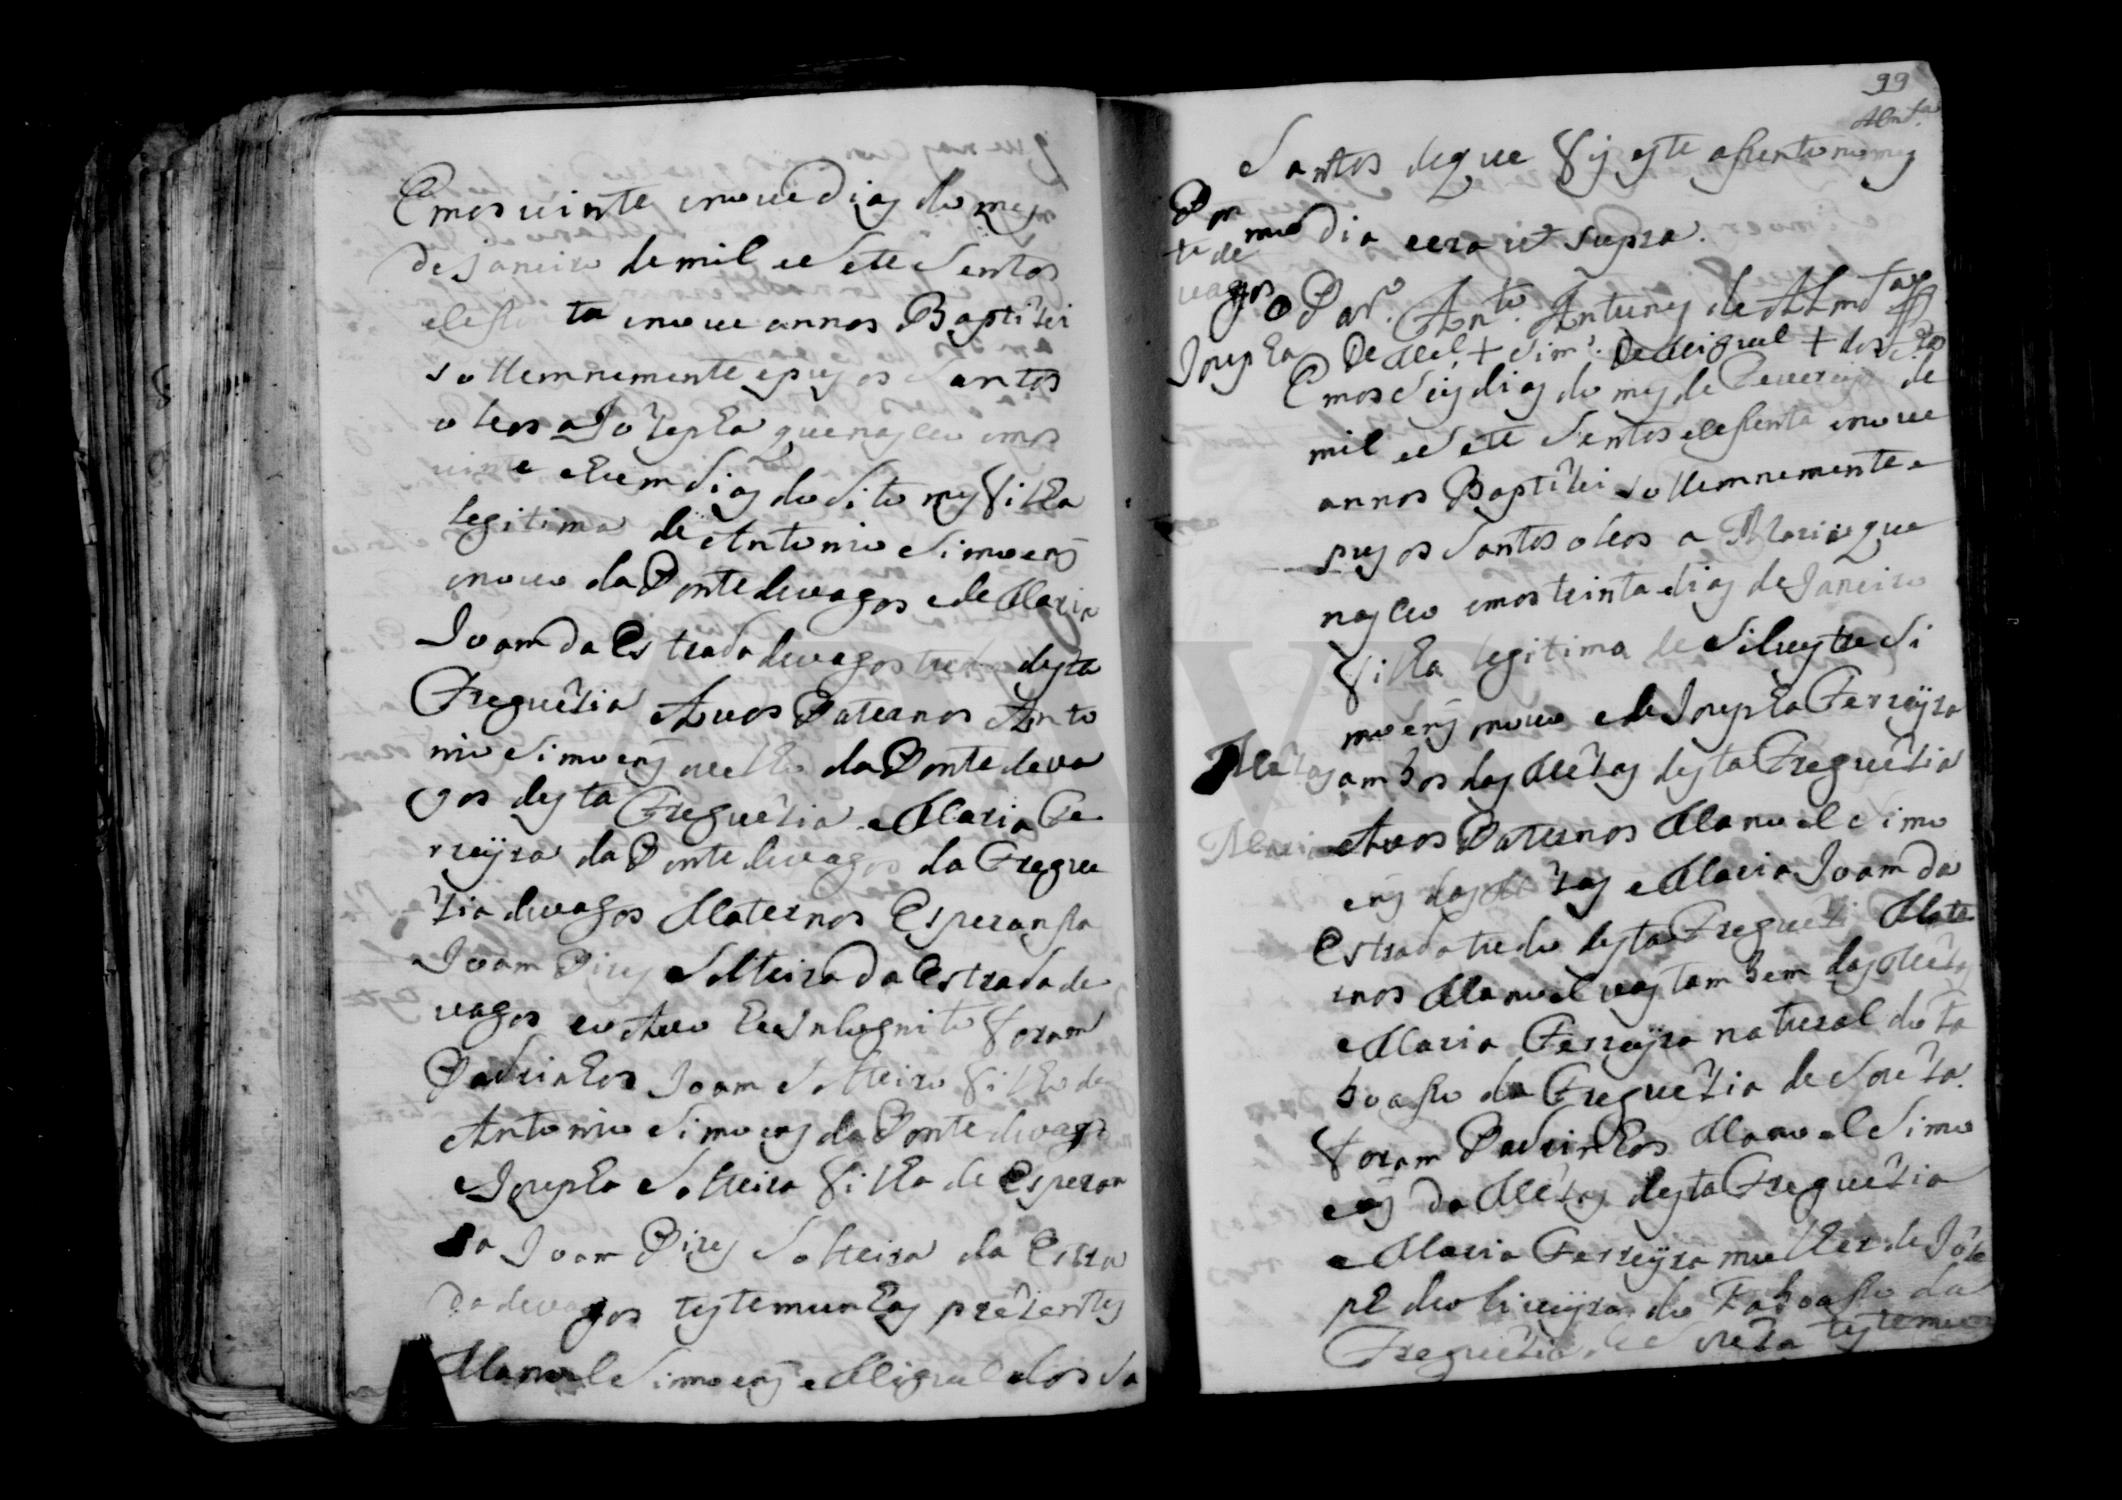 Emos uinte enoue Dias do mes
de Janeiro de mil e Sete Sentos
e seSenta enoue annos Baptizei
Sollemnemente e pus os Santos
oleos a Jozepha que nasceu emos
uinte e hum Dias do Dito mes filha
legitima de Antonio Simoens
nouo da Ponte de uagos e de Maria
Joam da Estrada de uagos tudo desta
Freguezia Auos Paternos Anto
nio Simoens uelho da Ponte de ua
gos desta Freguezia e Maria Fe
rreyra da Ponte de uagos da Fregue
zia de uagos Maternos Esperansa
Joam Pires Solteira da Estrada de
uagos eo Auo he Incognito foram
Padrinhos Joam Solteiro filho de
Antonio Simoens da Ponte de uagos
e Josepha Solteira filha de Esperan
sa Joam Pires Solteira da Estra
da de uagos testemunhas prezentes
Manoel Simoens e Miguel dos Sa
99
Almda
Santos de que fis este asento no mes
mo Dia e era ut Supra.
Pon
te de
uagos
Josepha
O Par.o Anto. Antunes de Almda
De Mel + Sim. De Miguel + dos Stos
Emos Seis dias do mes de Feuereiro de
mil e Sete Sentos e seSenta enoue
annos Baptizei Sollemnemente e
pus os Santos oleos a Maria que
nasceu emos trinta dias de Janeiro
filha legitima de Siluestre Si
moens nouo e de Josepha Ferreyra
Mezas
ambos das Mezas desta Freguezia
Maria
Auos Paternos Manoel Simo
ens das Mezas e Maria Joam da
Estrada tudo desta Freguezia Mate
rnos Manoel uas tambem das Mezas
e Maria Ferreyra natural do Ta
boaso da Freguezia de Soza.
foram Padrinhos Manoel Simo
ens da Mezas desta Freguezia
e Maria Ferreyra mulher de Joze
ph de oliueyra do Taboaso da
Freguezia de Soza testemu